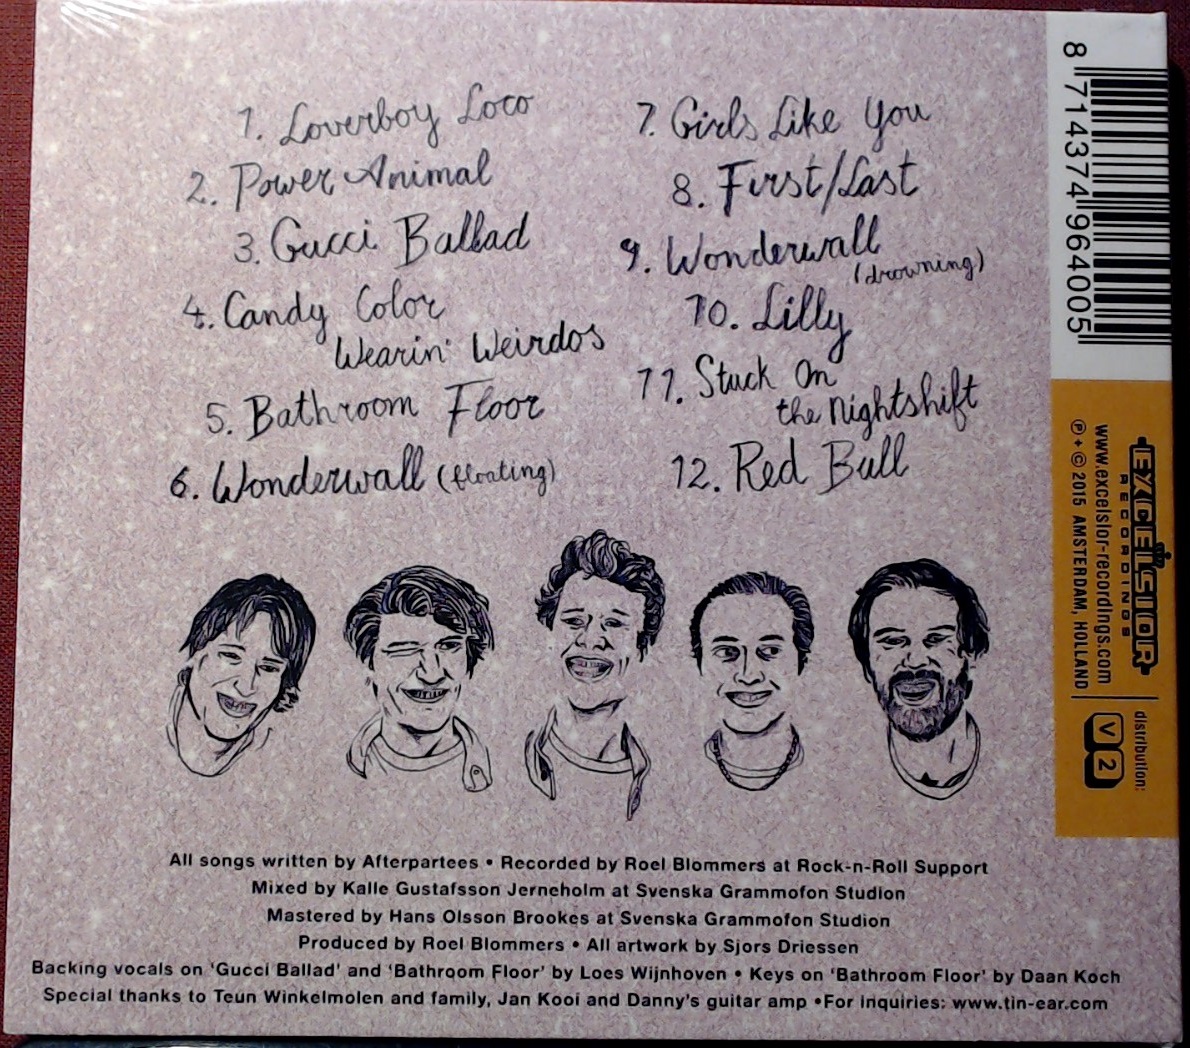 1. Loverboy Loco
2. Power Animal
3. Gucci Ballad
4. Candy Color
Wearin' Weirdos
5. Bathroom Floor
6. Wonderwall (floating)
7. Girls Like You
8. First/Last
9. Wonderwall
(drowning)
10. Lilly
11. Stuck On
the Nightshift
12. Red Bull
All songs written by Afterpartees • Recorded by Roel Blommers at Rock-n-Roll Support
Mixed by Kalle Gustafsson Jerneholm at Svenska Grammofon Studion
Mastered by Hans Olsson Brookes at Svenska Grammofon Studion
Produced by Roel Blommers • All artwork by Sjors Driessen
Backing vocals on 'Gucci Ballad' and 'Bathroom Floor' by Loes Wijnhoven • Keys on 'Bathroom Floor' by Daan Koch
Special thanks to Teun Winkelmolen and family, Jan Kooi and Danny's guitar amp •For inquiries: www.tin-ear.com
8 714374 964005
EXCELSIOR
RECORDINGS
www.excelsior-recordings.com
℗ + © 2015 AMSTERDAM, HOLLAND
distribution:
V2